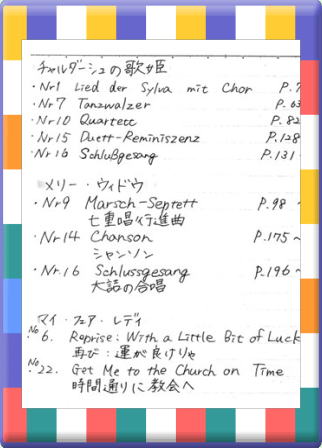 チャルダーシュの歌姫
・Nr1 Lied der Sylva mit Chor P.7
・Nr7 Tanzwalzer P.63
・Nr10 Quartett P.82
・Nr15 Duett-Reminiszenz P.128
・Nr16 Schlußgesang P.131
メリー・ウィドウ
・Nr9 Marsch-Septett P.98 ~
七重唱行進曲
・Nr14 Chanson P.175 ~
シャンソン
・Nr.16 Schlussgesang P.196 ~
大詰の合唱
マイ・フェア・レディ
No6. Reprise: With a Little Bit of Luck
再び:運が良けりゃ
No22. Get Me to the Church on Time
時間通りに教会へ